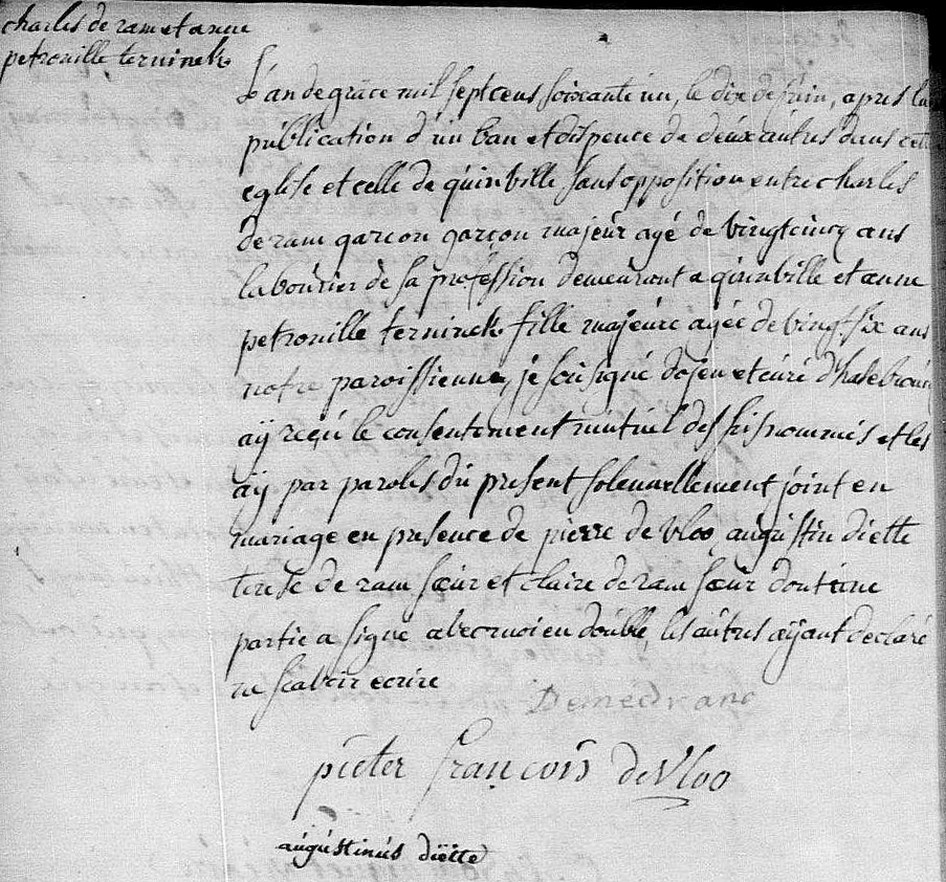 charles de ram et anne
petronille terninck
L'an de grâce mil sept cens soixante un, le dix de juin, apres la
publication d'un ban et dispence de deux autres dans cette
eglise et celle de quinville, sans opposition entre charles
de ram garcon garçon majeur agé de vingtcincq ans
labourier de sa profession demeurant a quinville et anne
petronille terninck fille majeure agée de vingt-six ans
notre paroissienne, je sousigné dojen et curé d'hasebrouc
aÿ reçu le consentement mutuel des susnommés et les
aÿ par paroles du present solennellement joint en
mariage en presence de pierre de vloo, augustin diette
terese de ram sœur et claire de ram sœur dont une
partie a signé avecmoi en double, les autres aÿant declaré
ne scavoir ecrire
Demedrano
pieter françois de vloo
augustinus diëtte